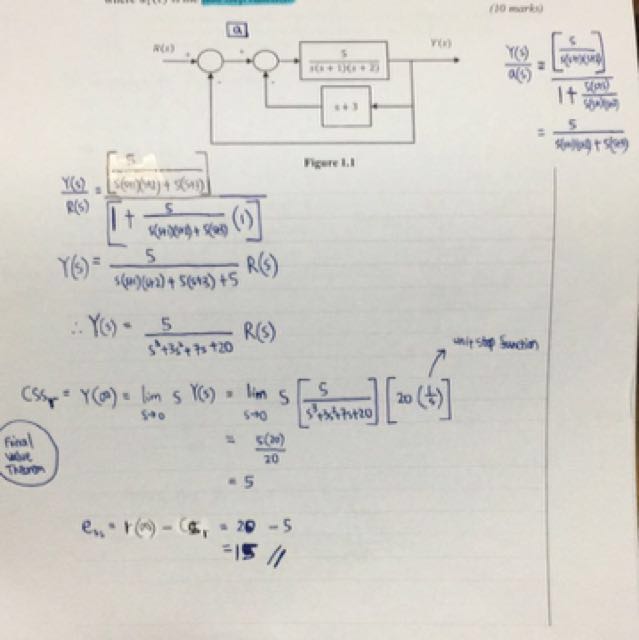 (10 marks)
a
R(s)
5
s(s + 1)(s + 2)
Y(s)
s + 3
Figure 1.1
Y(s)/a(s) = [5/s(s+1)(s+2)] / 1 + 5(s+3)/s(s+1)(s+2)
= 5 / s(s+1)(s+2) + 5(s+3)
Y(s)/R(s) = [5 / s(s+1)(s+2) + 5(s+3)] / [1 + 5 / s(s+1)(s+2) + 5(s+3) (1)]
Y(s) = 5 / s(s+1)(s+2) + 5(s+3) + 5 R(s)
∴ Y(s) = 5 / s³+3s²+7s+20 R(s)
unit step function
Css_r = Y(∞) = lim s→0 s Y(s) = lim s→0 s [5 / s³+3s²+7s+20] [20 (1/s)]
Final Value Theorem
= 5(20) / 20
= 5
e_ss = r(∞) - Css_r = 20 - 5
= 15 //